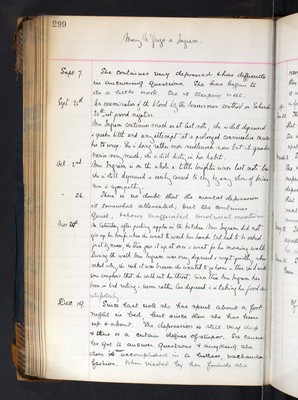 299
Mary de Vrize or Ingram.
Sept. 7. She continues very depressed & has difficulty
in answering questions. She has begun to
do a little work. She is sleeping well.
Sept. 20th An examination of the blood by the Wassermann method on Saturday
20th inst proved negative.
Mrs Ingram continues much as at last note, she is still depressed
& speaks little and any attempt at a prolonged conversation causes
her to weep. She is doing rather more needlework now but it
varies very much, she is still dirty in her habits.
Oct. 2nd Mrs Ingram is on the whole a little brighter since last note but
she is still depressed & easily caused to cry by any show of kindness
or sympathy.
- 26. There is no doubt that the mental depression
is somewhat alleviated, but she continues
quiet, & shows exaggerated emotional reaction
Nov. 20th On Saturday after peeling apples in the kitchen Mrs Ingram did not
get up
by nurse, she then got up at once & went to
during the walk Mrs Ingram was very depressed & wept quietly, when
asked why she said it was because she wanted to go home & then said
was
been in bed resting & seems rather less depressed & is taking her food
satisfactorily.
Dec. 19. Since last note she has spent about a fort
night in bed, but since then she has been
up & about. The depression is still very deep
& there is a certain degree of stupor. She cannot
be got to answer questions & anything she
does is accomplished in a listless, mechanical
fashion. When visited by her friends she